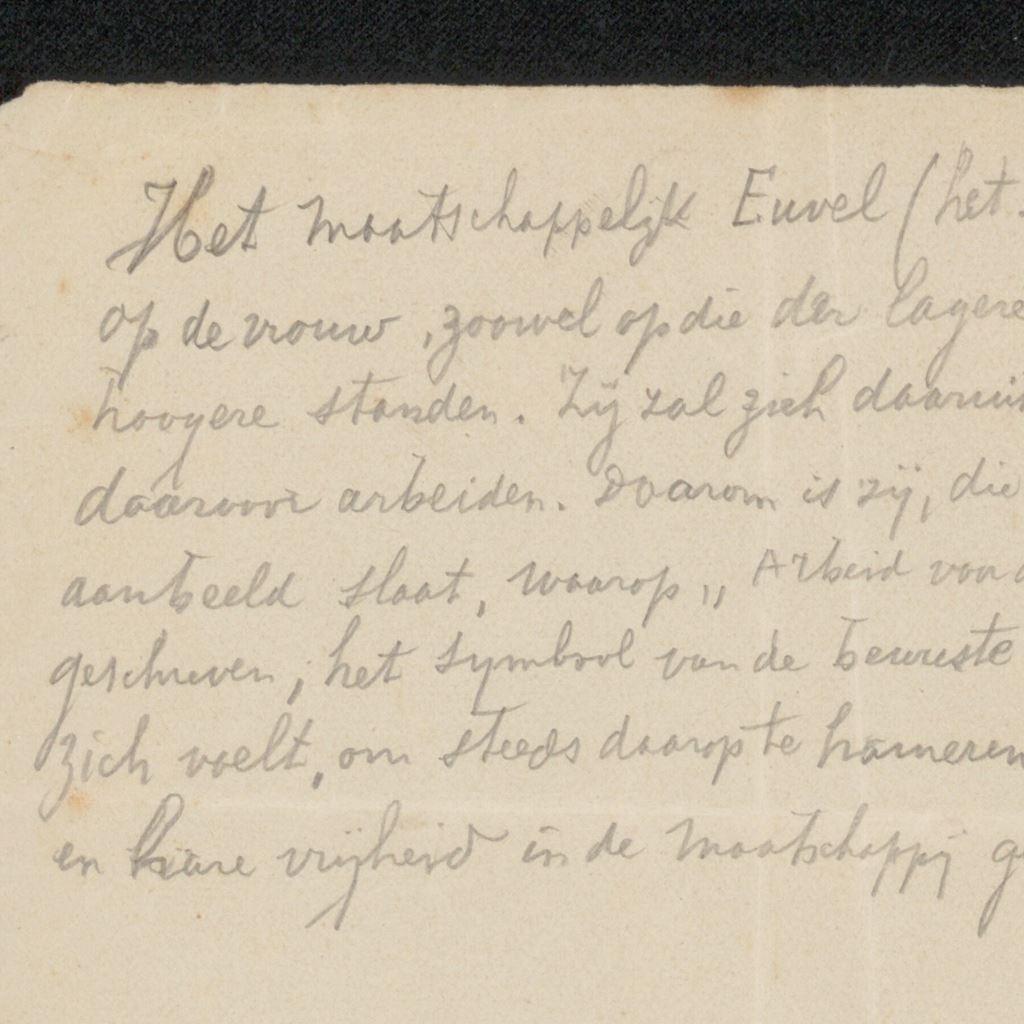 Het maatschappelijk Euvel (het
op de vrouw, zoowel op die der lagere
hoogere standen. Zij zal zich daaruit
daarvoor arbeiden. Daarom is zij, die
aanbeeld slaat, waarop „ Arbeid voor
geschreven, het symbool van de bewuste
zich voelt, om steeds daarop te hameren
en hare vrijheid in de maatschappij